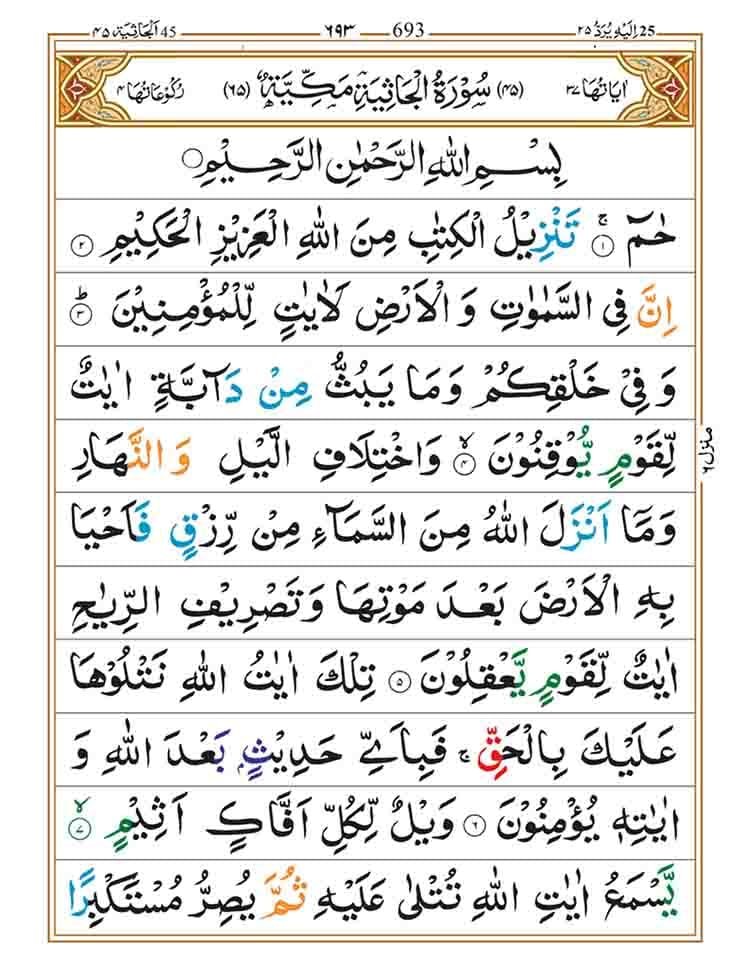 اِلَیْهِ یُرَدُّ ٢٥ 25 693 ٦٩٣ اَلْجَاثِیَة ٤٥ 45
اٰیَاتُهَا ٣٧ (٤٥) سُوْرَةُ الْجَاثِیَةِ مَكِّیَّةٌ (٦٥) رُكُوْعَاتُهَا ٤
بِسْمِ اللّٰهِ الرَّحْمٰنِ الرَّحِیْمِ
حٰمٓ ۚ ۝١ تَنْزِیْلُ الْكِتٰبِ مِنَ اللّٰهِ الْعَزِیْزِ الْحَكِیْمِ ۝٢
اِنَّ فِی السَّمٰوٰتِ وَ الْاَرْضِ لَاٰیٰتٍ لِّلْمُؤْمِنِیْنَ ؕ ۝٣
وَ فِیْ خَلْقِكُمْ وَمَا یَبُثُّ مِنْ دَآبَّةٍ اٰیٰتٌ
لِّقَوْمٍ یُّوْقِنُوْنَ ۙ ۝٤ وَاخْتِلَافِ الَّیْلِ وَالنَّهَارِ
وَمَاۤ اَنْزَلَ اللّٰهُ مِنَ السَّمَآءِ مِنْ رِّزْقٍ فَاَحْیَا
بِهِ الْاَرْضَ بَعْدَ مَوْتِهَا وَتَصْرِیْفِ الرِّیٰحِ
اٰیٰتٌ لِّقَوْمٍ یَّعْقِلُوْنَ ۝٥ تِلْكَ اٰیٰتُ اللّٰهِ نَتْلُوْهَا
عَلَیْكَ بِالْحَقِّ ۚ فَبِاَیِّ حَدِیْثٍۭ بَعْدَ اللّٰهِ وَ
اٰیٰتِهٖ یُؤْمِنُوْنَ ۝٦ وَیْلٌ لِّكُلِّ اَفَّاكٍ اَثِیْمٍ ۙ ۝٧
یَّسْمَعُ اٰیٰتِ اللّٰهِ تُتْلٰی عَلَیْهِ ثُمَّ یُصِرُّ مُسْتَكْبِرًا
منزل ٦